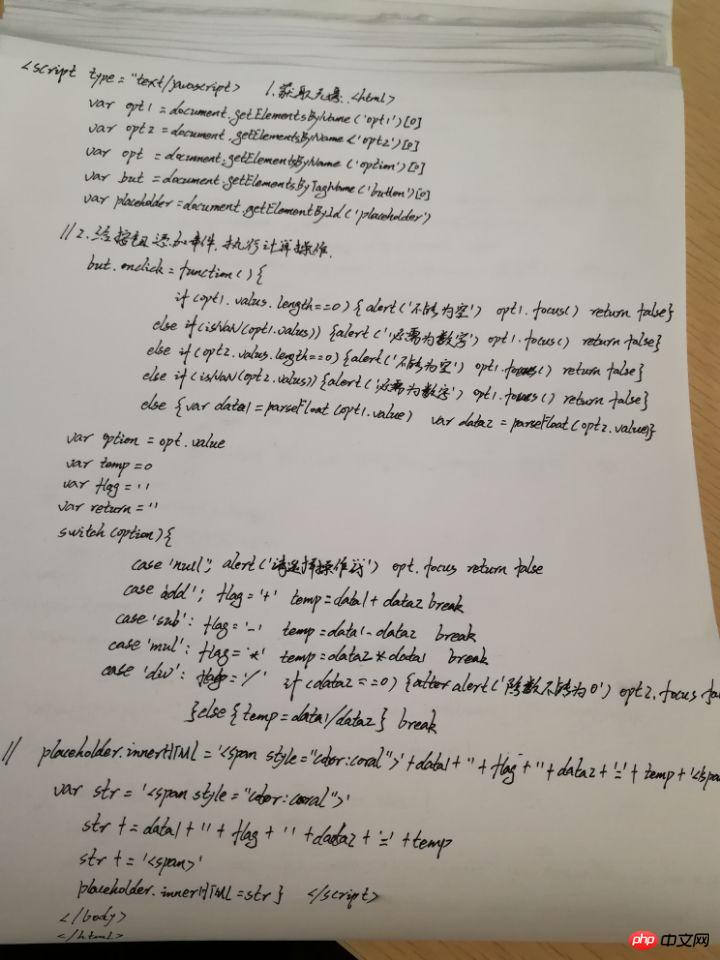 <script type="text/javascript> 1.获取元素. <html>
var opt1 = document.getElementsByName('opt1')[0]
var opt2 = document.getElementsByName<'opt2')[0]
var opt = document.getElementsByName('option')[0]
var but = document.getElementsByTagName('button')[0]
var placeholder = document.getElementById('placeholder')
//2.给按钮添加事件.执行计算操作.
but.onclick = function(){
if(opt1.values.length==0){alert('不能为空') opt1.focus() return false}
else if(isNaN(opt1.values)){alert('必需为数字') opt1.focus() return false}
else if(opt2.values.length==0){alert('不能为空') opt1.focus() return false}
else if(isNaN(opt2.values)){alert('必需为数字') opt1.focus() return false}
else {var data1=parseFloat(opt1.value) var data2=parseFloat(opt2.value)}
var option = opt.value
var temp=0
var flag=''
var return=''
switch(option){
case 'null'; alert('请选择操作') opt.focus return false
case 'add'; flag='+' temp=data1+data2 break
case 'sub': flag='-' temp=data1-data2 break
case 'mul': flag='*' temp=data2*data1 break
case 'div': flag='/' if(data2==0){alert('除数不能为0') opt2.focus
}else{temp=data1/data2} break
// placeholder.innerHTML='<span style="color:coral">'+data1+''+flag+''+data2+'='+temp+'<span
var str='<span style="color:coral">'
str +=data1+''+flag+''+data2+'='+temp
str +='<span>'
placeholder.innerHTML=str} </script>
</body>
</html>
php 中文网